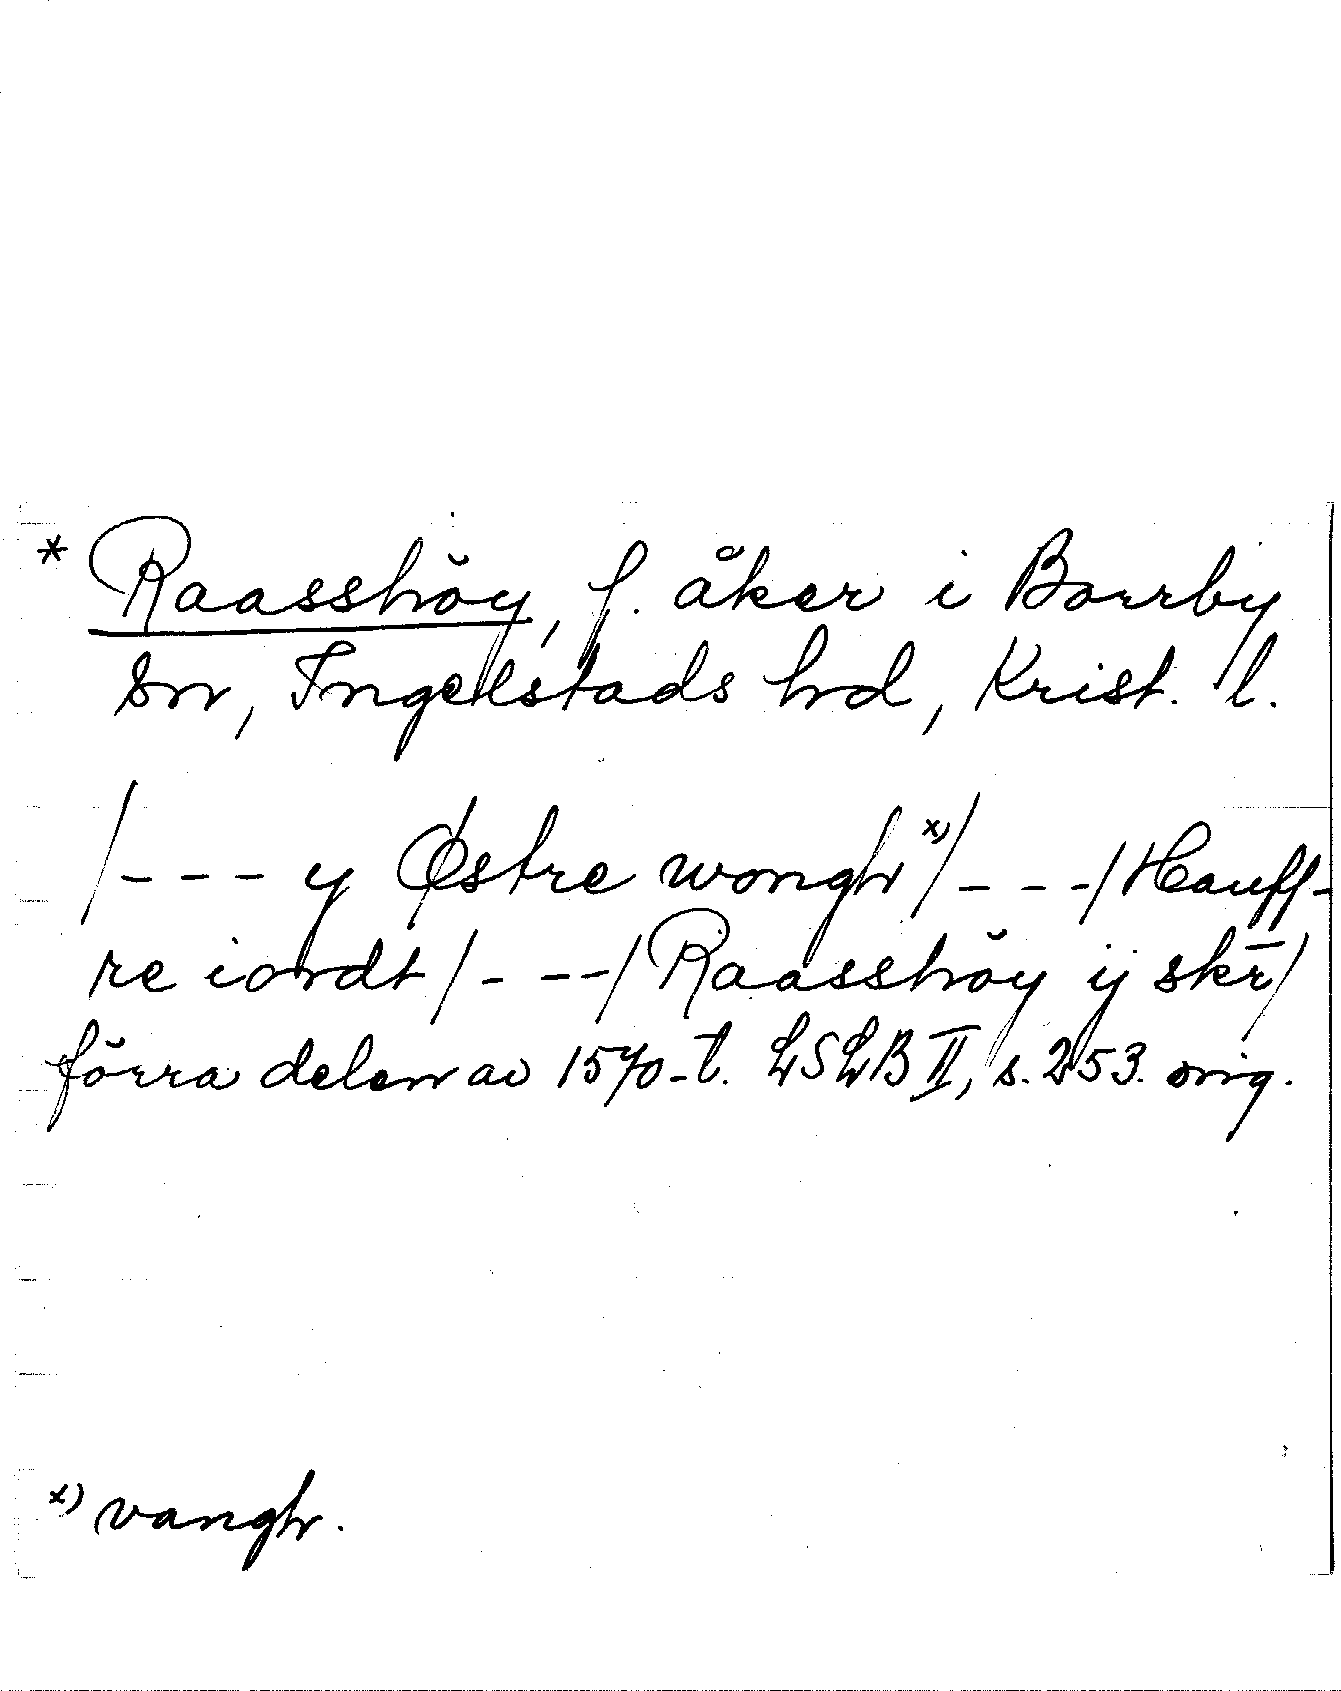 * Raasshöy, f. åker i Borrby
sn, Ingelstads hd, Krist. l.
/--- y Østre wongh x)/---/Hauff-
re iordt/---/Raasshöy ij skr̄/
förra delen av 1570-t. LSLB II, s. 253. orig.
x) vangh.